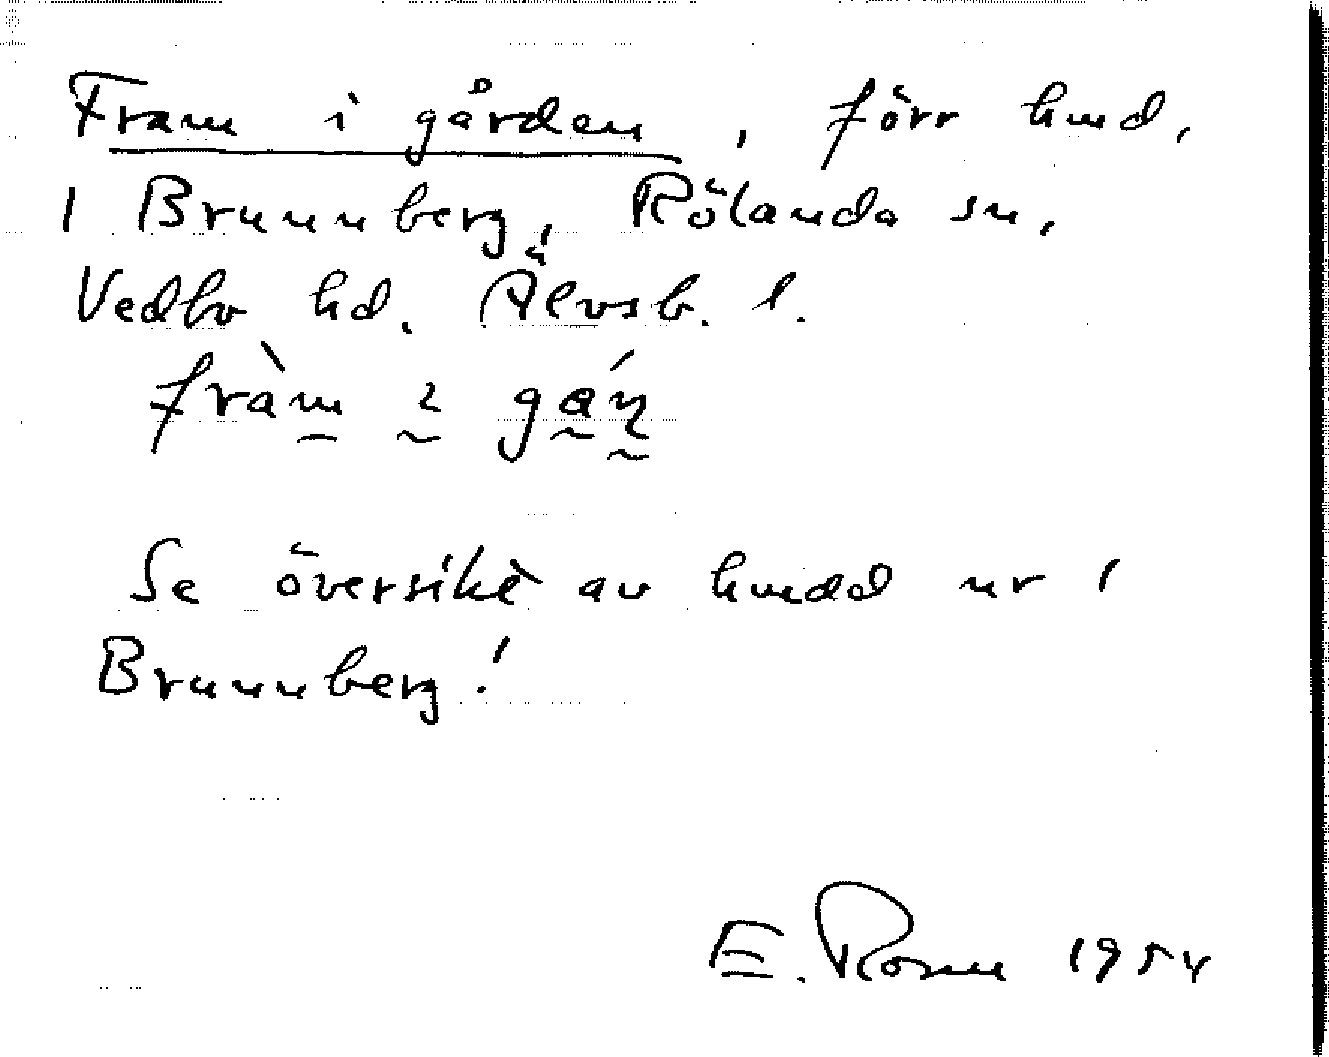 Fram i gården, förr hmd,
1 Brunnberg, Rölanda sn,
Vedbo hd. Älvsb. l.
fràm ı gá̱ɳ
Se översikt av hmdd nr 1
Brunnberg!
E. Rosen 1954